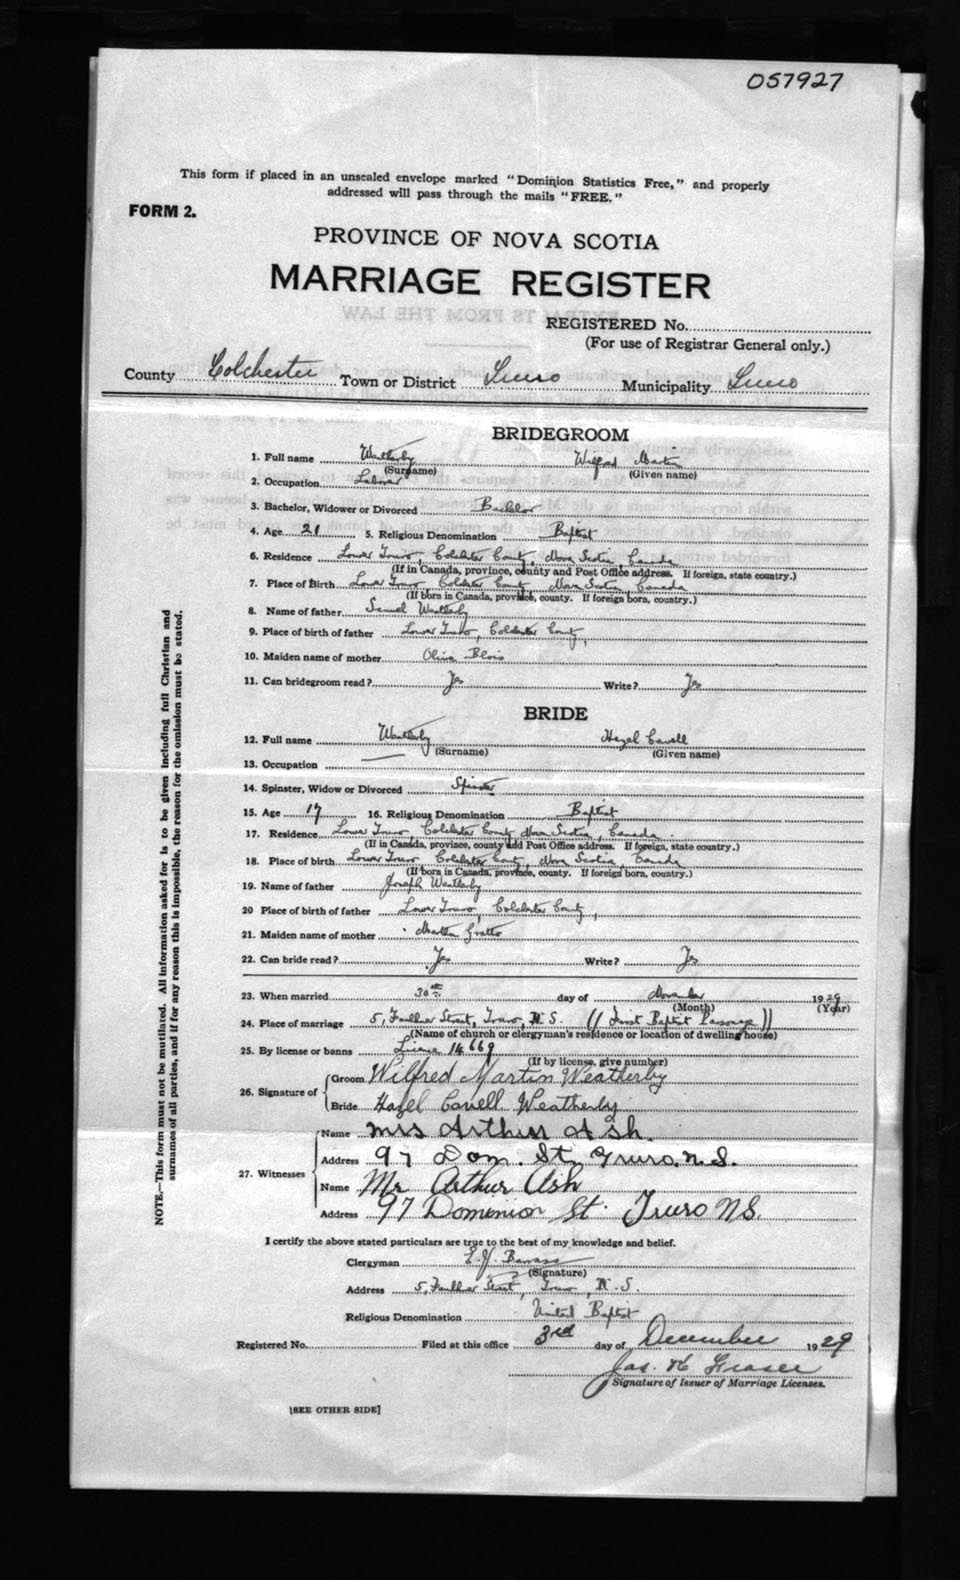 057927
This form if placed in an unsealed envelope marked "Dominion Statistics Free," and properly
addressed will pass through the mails "FREE."
FORM 2.
PROVINCE OF NOVA SCOTIA
MARRIAGE REGISTER
REGISTERED No.
(For use of Registrar General only.)
County Colchester Town or District Truro Municipality Truro
BRIDEGROOM
1. Full name Weatherby Wilfred Martin
(Surname) (Given name)
2. Occupation Laborer
3. Bachelor, Widower or Divorced Bachelor
4. Age 21 5. Religious Denomination Baptist
6. Residence Lower Truro, Colchester County, Nova Scotia, Canada
(If in Canada, province, county and Post Office address. If foreign, state country.)
7. Place of Birth Lower Truro, Colchester County, Nova Scotia, Canada
(If born in Canada, province, county. If foreign born, country.)
8. Name of father Samuel Weatherby
9. Place of birth of father Lower Truro, Colchester County,
10. Maiden name of mother Olive Blois
11. Can bridegroom read? Yes Write? Yes
BRIDE
12. Full name Weatherby Hazel Cavell
(Surname) (Given name)
13. Occupation —
14. Spinster, Widow or Divorced Spinster
15. Age 17 16. Religious Denomination Baptist
17. Residence Lower Truro, Colchester County, Nova Scotia, Canada.
(If in Canada, province, county add Post Office address. If foreign, state country.)
18. Place of birth Lower Truro, Colchester County, Nova Scotia, Canada
(If born in Canada, province, county. If foreign born, country.)
19. Name of father Joseph Weatherby
20 Place of birth of father Lower Truro, Colchester County,
21. Maiden name of mother Martha Gratto
22. Can bride read? Yes Write? Yes
23. When married 30th day of November 1929
(Month) (Year)
24. Place of marriage 5, Faulkner Street, Truro, N.S. (First Baptist Parsonage)
(Name of church or clergyman's residence or location of dwelling house)
25. By license or banns License 14669
(If by license, give number)
26. Signature of Groom Wilfred Martin Weatherby
Bride Hazel Cavell Weatherby
27. Witnesses Name Mrs Arthur Ash.
Address 97 Dom. St, Truro. N.S.
Name Mr Arthur Ash
Address 97 Dominion St. Truro N.S.
I certify the above stated particulars are true to the best of my knowledge and belief.
Clergyman E.J. Barrass
(Signature)
Address 5, Faulkner Street, Truro, N.S.
Religious Denomination United Baptist
Registered No. Filed at this office 3rd day of December 1929
Jas. K Fraser
Signature of Issuer of Marriage Licenses.
[SEE OTHER SIDE]
NOTE.—This form must not be mutilated. All information asked for is to be given including full Christian and
surnames of all parties, and if for any reason this is impossible, the reason for the omission must be stated.